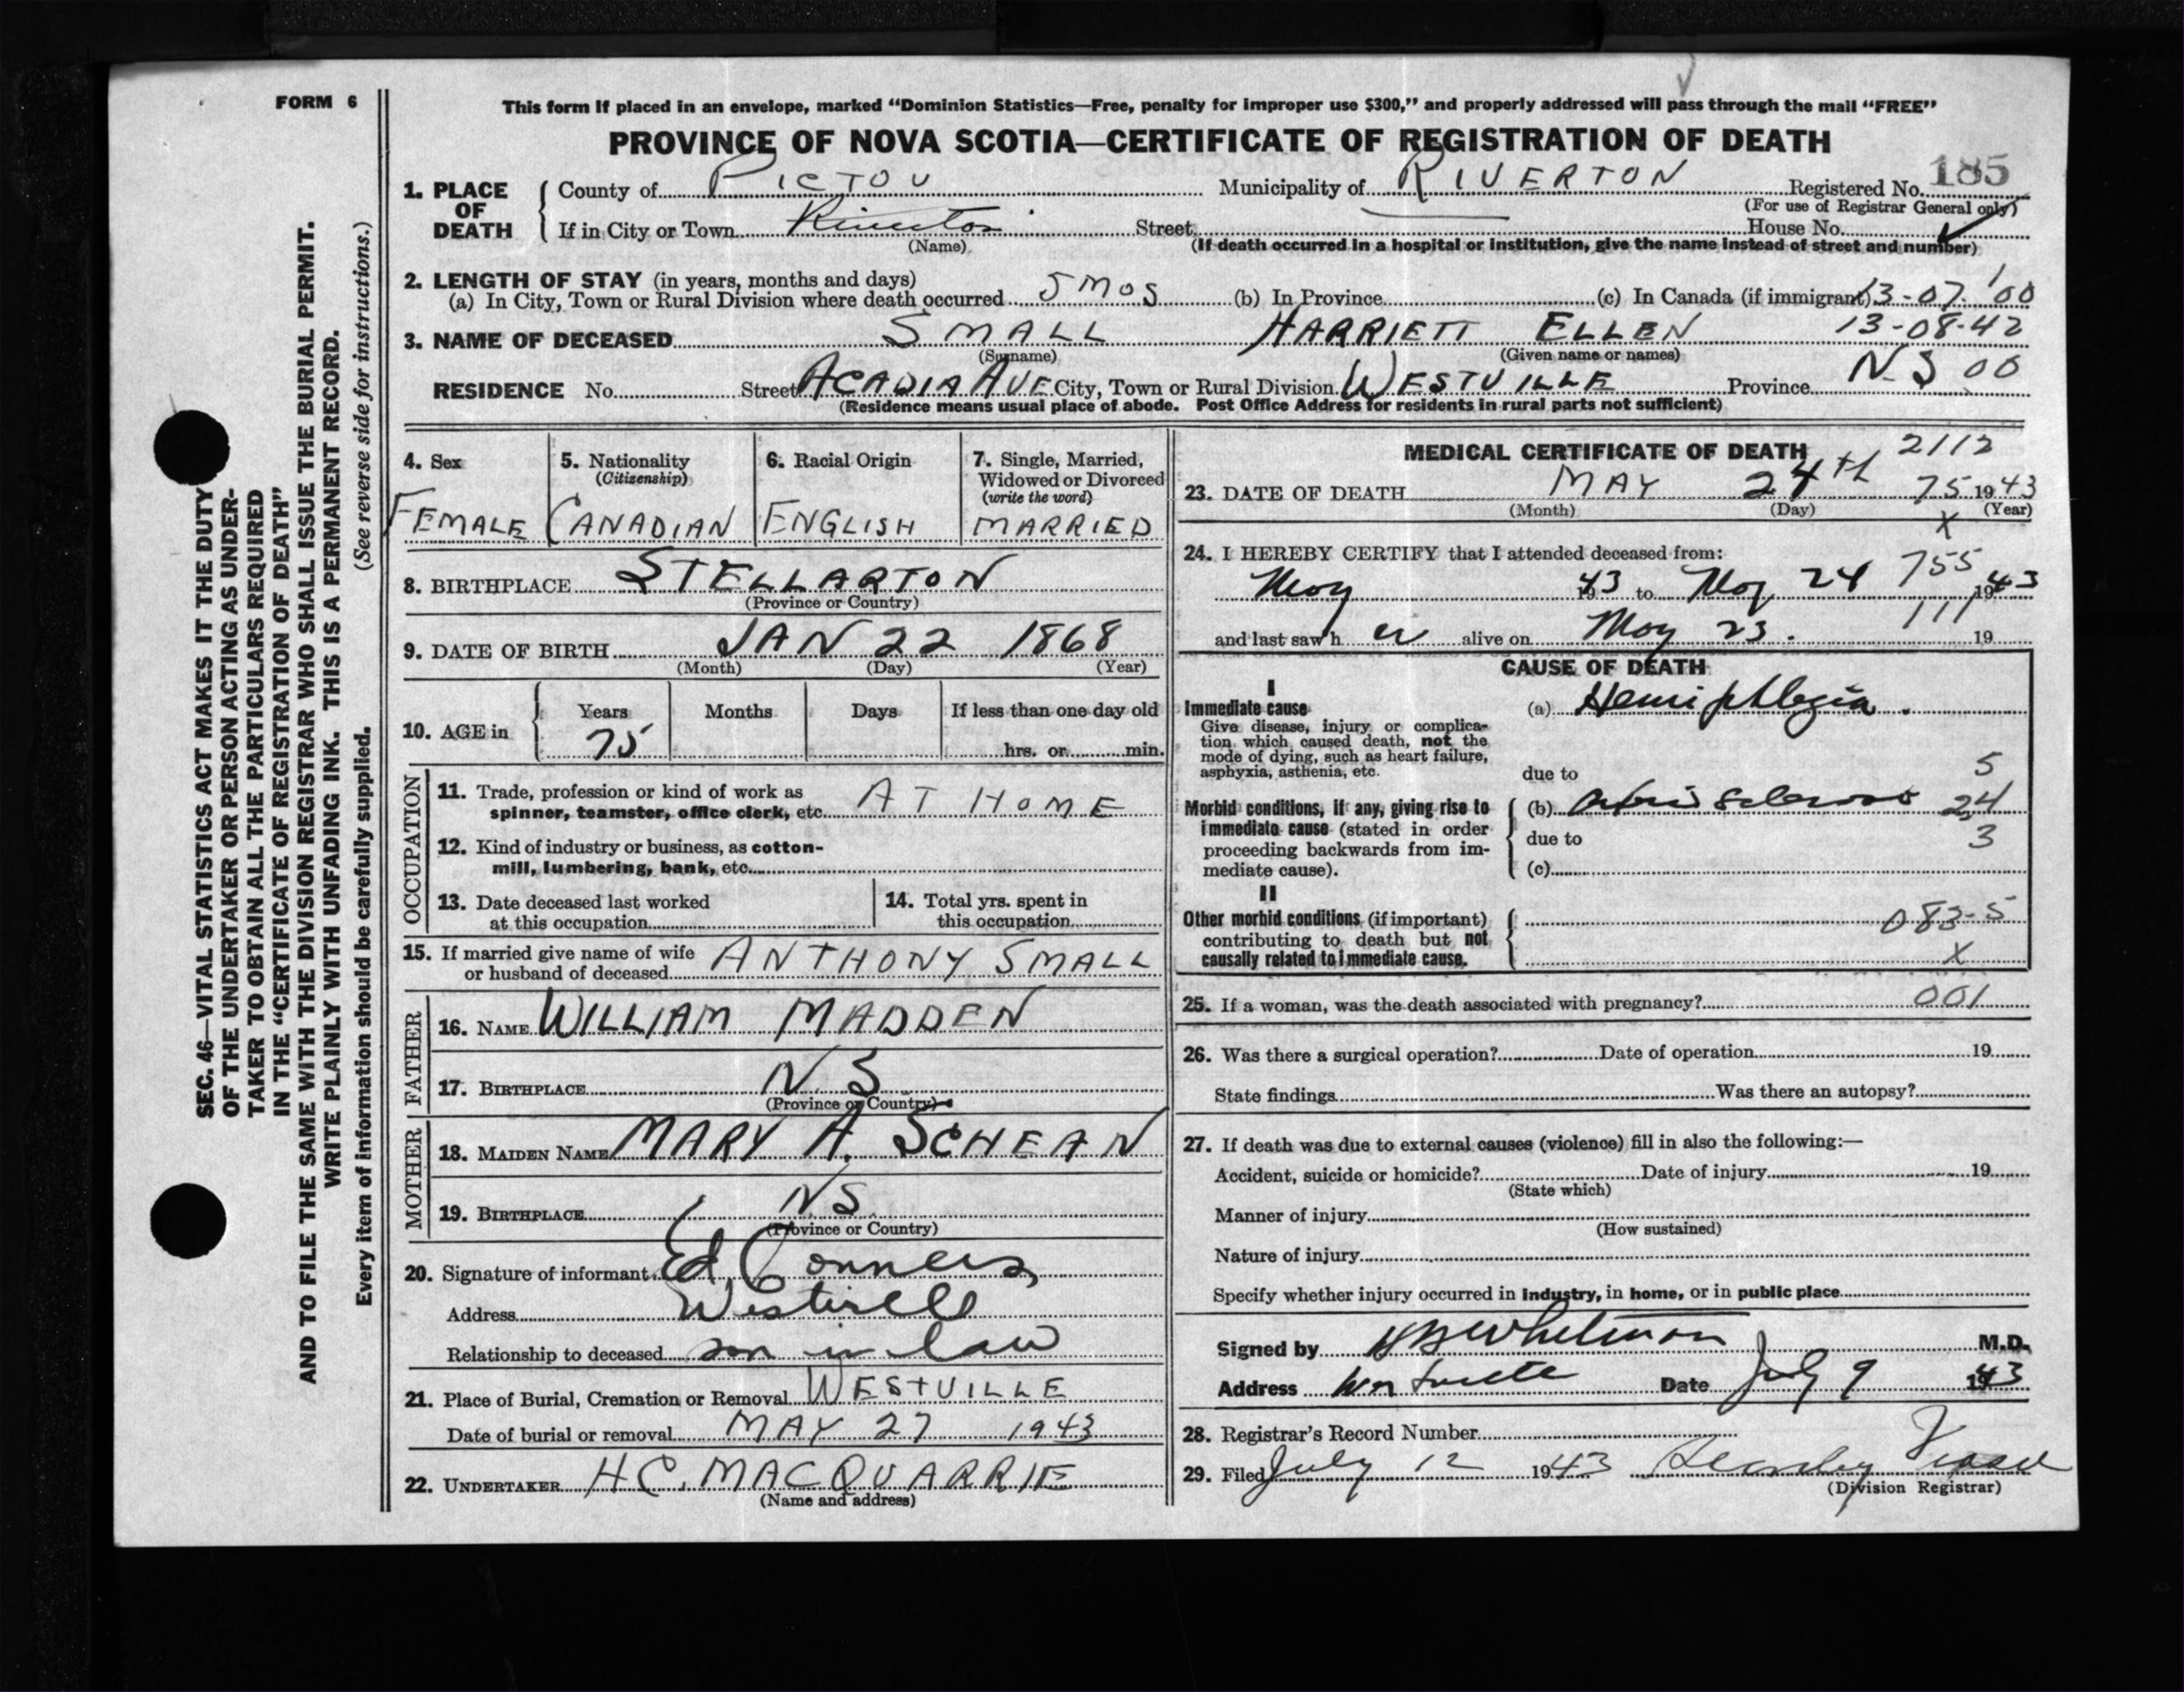 FORM 6
This form if placed in an envelope, marked “Dominion Statistics—Free, penalty for improper use $300,” and properly addressed will pass through the mail “FREE”
PROVINCE OF NOVA SCOTIA—CERTIFICATE OF REGISTRATION OF DEATH
1. PLACE OF DEATH County of PICTOU Municipality of RIVERTON Registered No. 185
(For use of Registrar General only)
If in City or Town Riverton Street House No.
(Name) (If death occurred in a hospital or institution, give the name instead of street and number)
2. LENGTH OF STAY (in years, months and days)
(a) In City, Town or Rural Division where death occurred 5 MOS (b) In Province (c) In Canada (if immigrant) 13-07-'00
3. NAME OF DECEASED SMALL HARRIETT ELLEN 13-08-42
(Surname) (Given name or names)
RESIDENCE No. Street ACADIA AVE City, Town or Rural Division WESTVILLE Province NS 00
(Residence means usual place of abode. Post Office Address for residents in rural parts not sufficient)
4. Sex 5. Nationality (Citizenship) 6. Racial Origin 7. Single, Married, Widowed or Divorced (write the word)
FEMALE CANADIAN ENGLISH MARRIED
8. BIRTHPLACE STELLARTON
(Province or Country)
9. DATE OF BIRTH JAN 22 1868
(Month) (Day) (Year)
10. AGE in Years Months Days If less than one day old
75 hrs. or min.
OCCUPATION
11. Trade, profession or kind of work as spinner, teamster, office clerk, etc. AT HOME
12. Kind of industry or business, as cotton-mill, lumbering, bank, etc.
13. Date deceased last worked at this occupation
14. Total yrs. spent in this occupation
15. If married give name of wife or husband of deceased ANTHONY SMALL
FATHER
16. NAME WILLIAM MADDEN
17. BIRTHPLACE NS
(Province or Country)
MOTHER
18. MAIDEN NAME MARY A. SCHEAN
19. BIRTHPLACE NS
(Province or Country)
20. Signature of informant Ed Conners
Address Westville
Relationship to deceased son in law
21. Place of Burial, Cremation or Removal WESTVILLE
Date of burial or removal MAY 27 1943
22. UNDERTAKER H C. MACQUARRIE
(Name and address)
MEDICAL CERTIFICATE OF DEATH 2112
23. DATE OF DEATH MAY 24TH 75 1943
(Month) (Day) (Year)
X
24. I HEREBY CERTIFY that I attended deceased from:
May 43 to May 24 755 1943
and last saw h er alive on May 23. 111 19
CAUSE OF DEATH
I
Immediate cause
Give disease, injury or complication which caused death, not the mode of dying, such as heart failure, asphyxia, asthenia, etc.
(a) Hemiphlegia.
due to 5
Morbid conditions, if any, giving rise to immediate cause (stated in order proceeding backwards from immediate cause).
(b) 24
due to 3
(c)
II
Other morbid conditions (if important) contributing to death but not causally related to immediate cause.
083-5
X
25. If a woman, was the death associated with pregnancy? 001
26. Was there a surgical operation? Date of operation 19
State findings Was there an autopsy?
27. If death was due to external causes (violence) fill in also the following:—
Accident, suicide or homicide? Date of injury 19
(State which)
Manner of injury
(How sustained)
Nature of injury
Specify whether injury occurred in industry, in home, or in public place
Signed by Whitman M.D.
Address Date July 9 1943
28. Registrar's Record Number
29. Filed July 12 1943
(Division Registrar)
SEC. 46—VITAL STATISTICS ACT MAKES IT THE DUTY
OF THE UNDERTAKER OR PERSON ACTING AS UNDER-
TAKER TO OBTAIN ALL THE PARTICULARS REQUIRED
IN THE “CERTIFICATE OF REGISTRATION OF DEATH”
AND TO FILE THE SAME WITH THE DIVISION REGISTRAR WHO SHALL ISSUE THE BURIAL PERMIT.
WRITE PLAINLY WITH UNFADING INK. THIS IS A PERMANENT RECORD.
Every item of information should be carefully supplied. (See reverse side for instructions.)